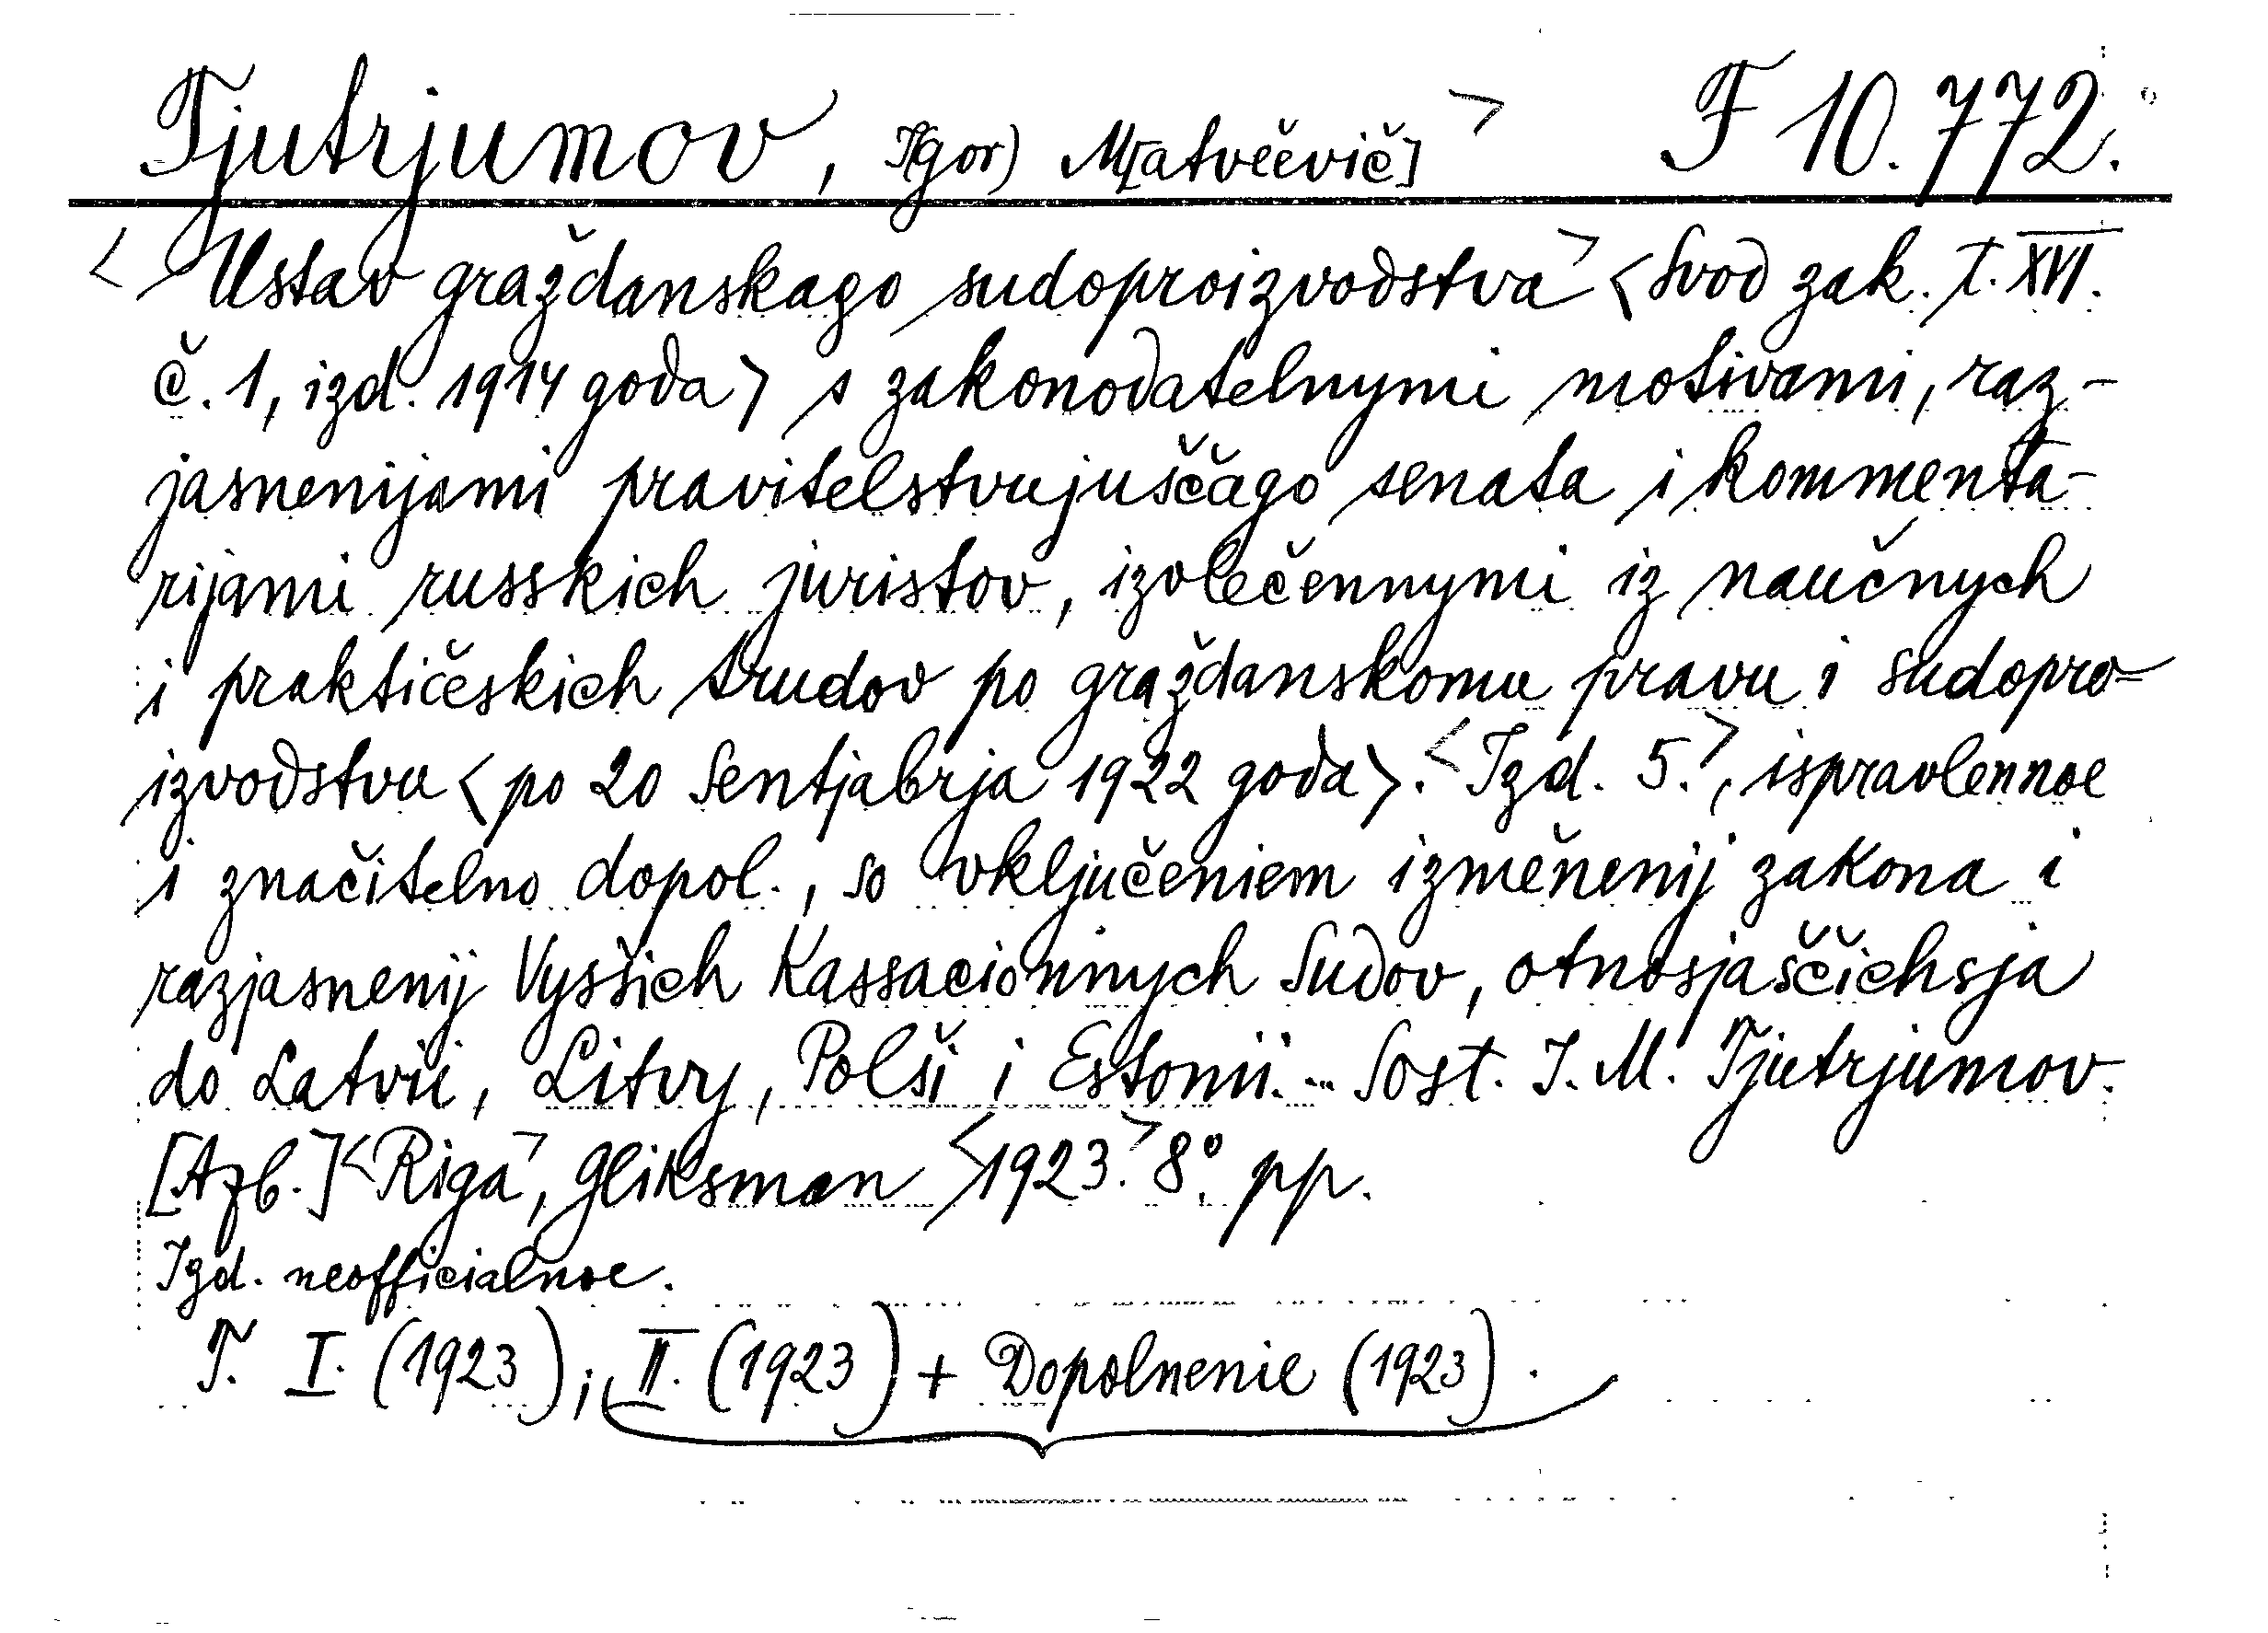 Tjutrjumov, I(gor) M[atvěevič]> F 10.772.
<Ustav graždanskago sudoproizvodstva> <Svod zak. t. XVI.
č. 1, izd. 1914 goda> s zakonodatelnymi motivami, raz-
jasnenijami pravitelstvujuščago senata i kommenta-
rijami russkich juristov, izvlečennymi iz naučnych
i praktičeskich trudov po graždanskomu pravu i sudopro-
izvodstvu <po 20 Sentjabrja 1922 goda>. <Izd. 5.>, ispravlennoe
i značitelno dopol., so vključeniem izměnenij zakona i
razjasnenij Vysšich Kassacionnych Sudov, otnosjaščichsja
do Latvii, Litvy, Polši i Estonii. - Sost. I. M. Tjutrjumov.
[Azb.] <Riga>, Gliksman <1923.> 8°. pp.
Izd. neofficialnoe.
T. I. (1923); II. (1923) + Dopolnenie (1923).